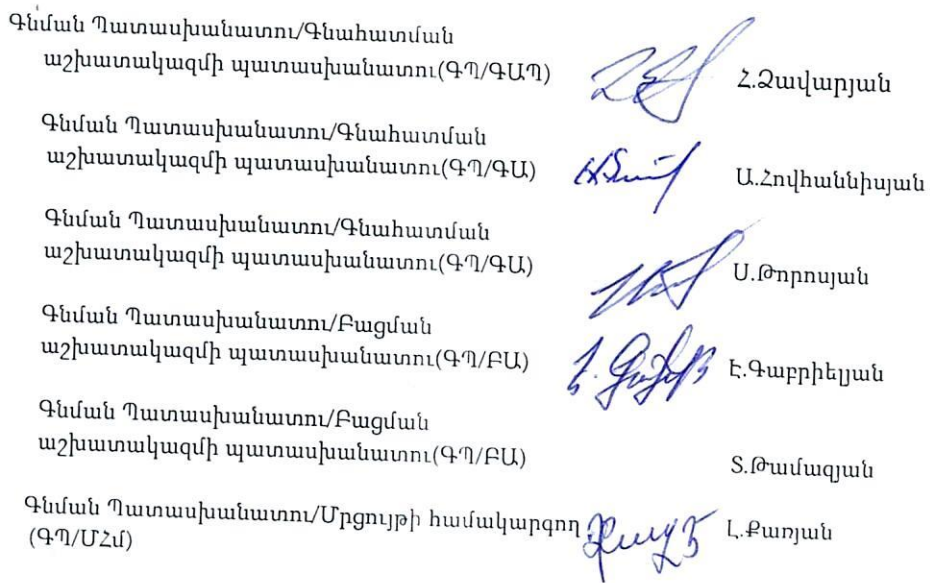 Գնման Պատասխանատու/Գնահատման
աշխատակազմի պատասխանատու(ԳՊ/ԳԱՊ)
Զ.Զավարյան
Գնման Պատասխանատու/Գնահատման
աշխատակազմի պատասխանատու(ԳՊ/ԳԱ)
Ա.Հովհաննիսյան
Գնման Պատասխանատու/Գնահատման
աշխատակազմի պատասխանատու(ԳՊ/ԳԱ)
Ս.Թորոսյան
Գնման Պատասխանատու/Բացման
աշխատակազմի պատասխանատու(ԳՊ/ԲԱ)
Է.Գաբրիելյան
Գնման Պատասխանատու/Բացման
աշխատակազմի պատասխանատու(ԳՊ/ԲԱ)
Տ.Թամազյան
Գնման Պատասխանատու/Մրցույթի համակարգող
(ԳՊ/ՄՀմ)
Լ.Քառյան